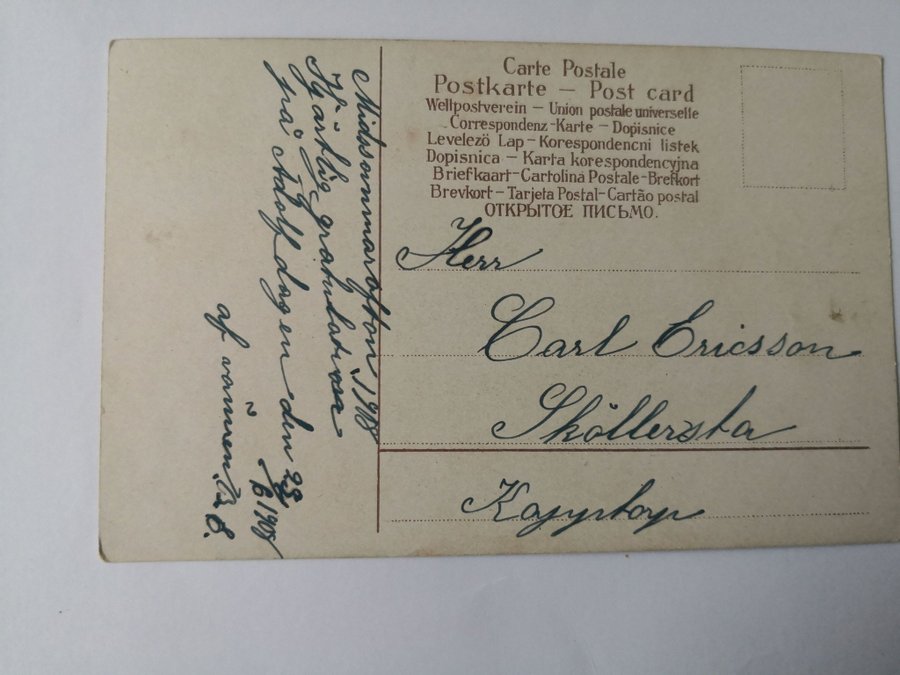 Carte Postale
Postkarte – Post card
Weltpostverein – Union postale universelle
Correspondenz-Karte – Dopisnice
Levelező Lap – Korespondencni listek
Dopisnica – Karta korespondencyjna
Briefkaart – Cartolina Postale – Brefkort
Brevkort – Tarjeta Postal – Cartão postal
ОТКРЫТОЕ ПИСЬМО.
Herr
Carl Ericsson
Sköllersta
Midsommarafton 1908
Hjärtlig gratulation
på Adolf dagen den 23/6 1908
af vännen